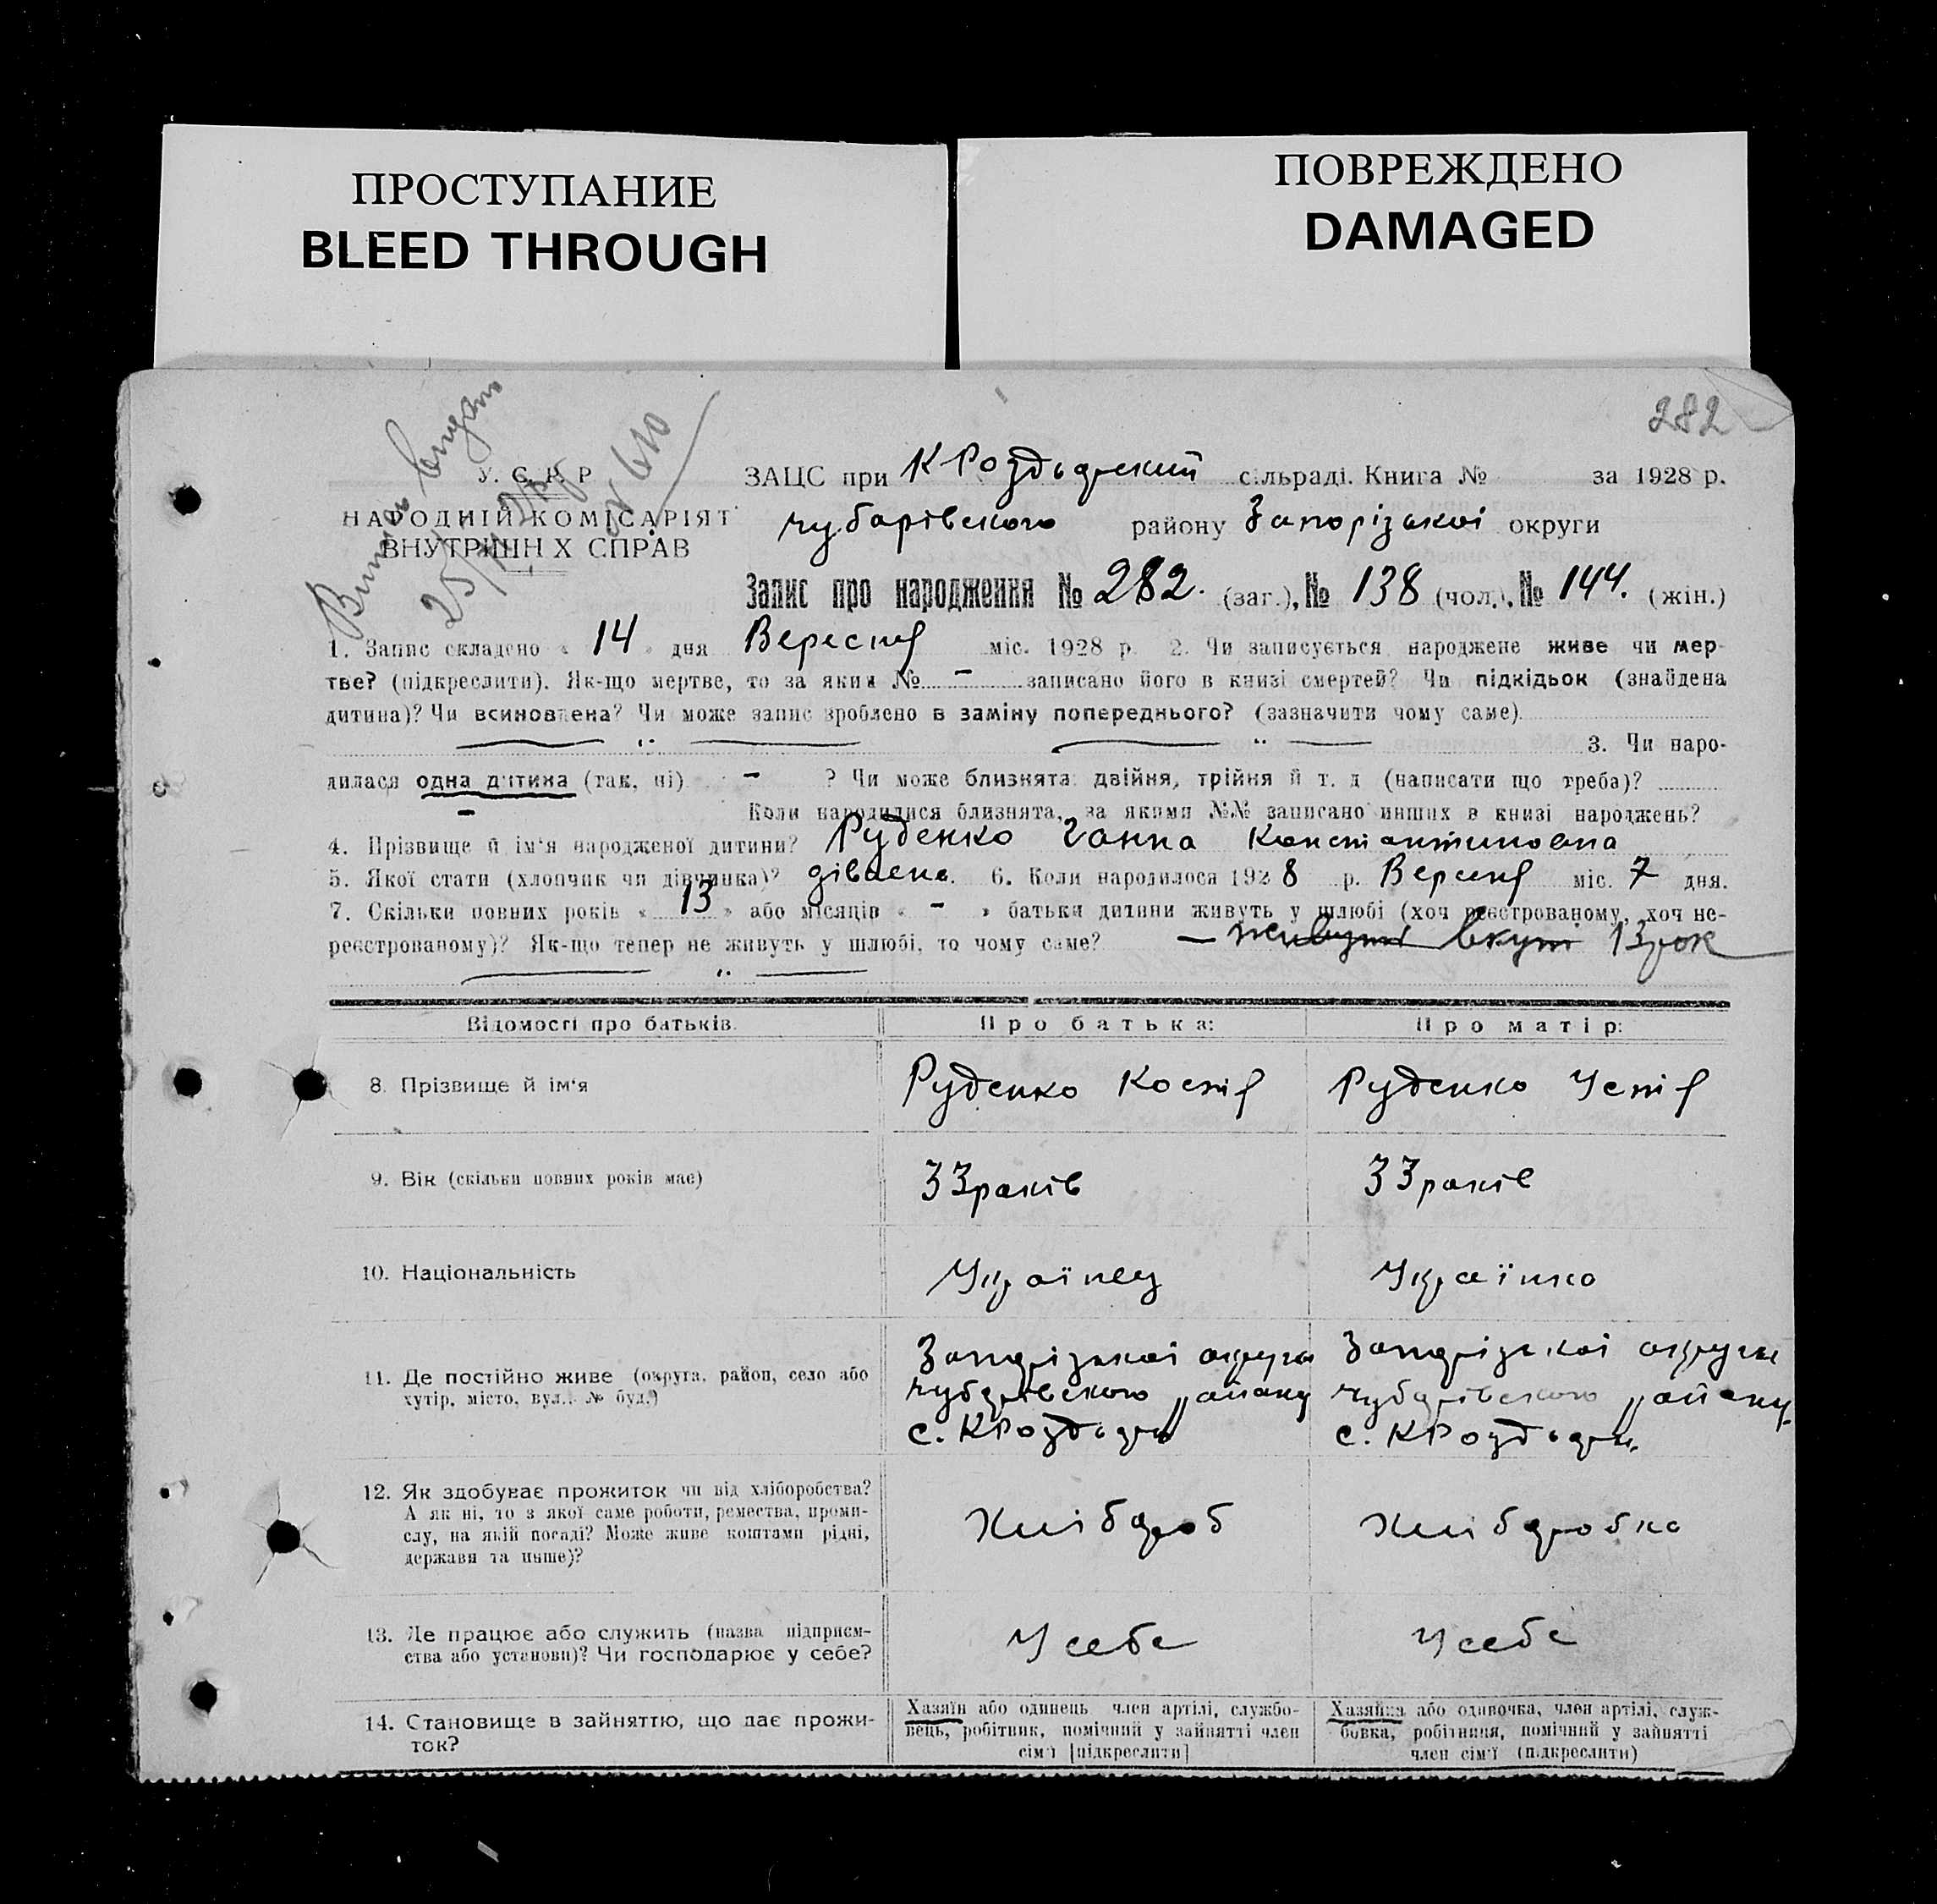 ПРОСТУПАНИЕ
BLEED THROUGH
ПОВРЕЖДЕНО
DAMAGED
282
У. С. Р. Р
НАРОДНІЙ КОМІСАРІЯТ
ВНУТРІШН Х СПРАВ
ЗАЦС при КРоздорский сільраді. Книга № за 1928 р.
чубарівского району Запорізької округи
Запис про народження № 282. (заг.), № 138 (чол.), № 144. (жін.)
1. Запис складено « 14 » дня Вересня міс. 1928 р. 2. Чи записується народжене живе чи мер-
тве? (підкреслити). Як-що мертве, то за яким № - записано його в книзі смертей? Чи підкідьок (знайдена
дитина)? Чи всиновлена? Чи може запис зроблено в заміну попереднього? (зазначити чому саме)
3. Чи наро-
дилася одна дитина (так, ні) - ? Чи може близнята: двійня, трійня й т. д (написати що треба)?
- Коли народилися близнята, за якими №№ записано инших в книзі народжень?
4. Прізвище й ім'я народженої дитини? Руденко Ганна Константиновна
5. Якої стати (хлопчик чи дівчинка)? 6. Коли народилося 1928 р. Вересня міс. 7 дня.
7. Скільки повних років « 13 » або місяців « - » батьки дитини живуть у шлюбі (хоч реєстрованому, хоч не-
реєстрованому)? Як-що тепер не живуть у шлюбі, то чому саме? — живуть вкупі 13 рок
Відомості про батьків. Про батька: Про матір:
8. Прізвище й ім'я Руденко Костя Руденко Устя
9. Вік (скільки повних років має) 33 раків 33 раків
10. Національність Українец Українко
11. Де постійно живе (округа, район, село або
хутір, місто, вул., № буд.)
Запорізькоі округи
чубарівского району
с. КРоздори
Запорізькоі округи
чубарівского району
с. КРоздори
12. Як здобуває прожиток чи від хліборобства?
А як ні, то з якої саме роботи, ремества, проми-
слу, на якій посаді? Може живе коштами рідні,
держави та инше)?
Хлібороб Хліборобка
13. Де працює або служить (назва підприєм-
ства або установи)? Чи господарює у себе?
У себе У себе
14. Становище в зайняттю, що дає прожи-
ток?
Хазяїн або одинець член артілі, службо-
вець, робітник, помічний у зайнятті член
сім'ї [підкреслити]
Хазяйка або одиночка, член артілі, служ-
бовка, робітниця, помічний у зайнятті
член сім'ї (підкреслити)